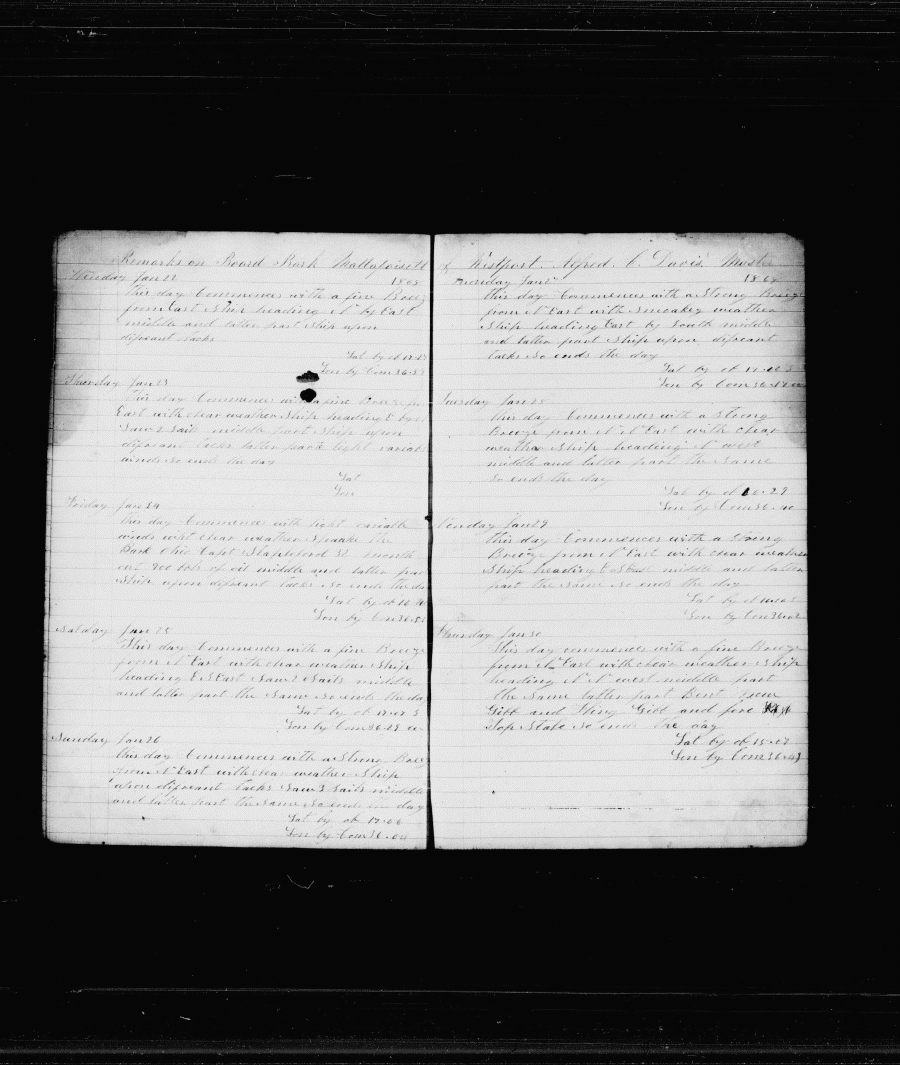 Remarks on Board Bark Mattapoisett
Wensday Jan 22 1868
this day Commences with a fine Breeze
from East Ship heading N by East
middle and latter part Ship upon
difreant tacks
Lat by ob
Lon by Crom 36
Thursday Jan 23
this day Commences with a fine Breeze
East with clear weather Ship heading E by
Saw 2 Sails middle part Ship upon
difreant tacks latter part light variabl
winds so ends the day
Lat
Lon
Friday Jan 24
this day Commences with light variable
winds with clear weather Speake the
Bark Ohio Capt Stapleford 32 month
out 900 bbls of oil middle and latter part
Ship upon difreant tacks so ends the da
Lat by ob
Lon by Crom 36
Satday Jan 25
this day Commences with a fine Breeze
from N East with clear weather Ship
heading E S East Saw 2 Sails middle
and latter part the Same so ends the day
Lat by ob
Lon by Crom 36-29
Sunday Jan 26
this day Commences with a Strong Breez
from N East with clear weather Ship
upon difreant tacks Saw 2 Sails middle
and latter part the Same so ends the day
Lat by ob
Lon by Crom 36
of Westport. Alfred. C Davis. Master
Jan 1868
this day Commences with a Strong Breeze
from N East with Smoakey weather
Ship heading East by South middle
and latter part Ship upon difreant
tacks so ends the day
Lat by ob
Lon by Crom 36
Tuesday Jan 28
this day Commences with a Strong
breeze from N N East with clear
weather Ship heading N west
middle and latter part the Same
so ends the day
Lat by ob
Lon by Crom 36
Wensday Jan 29
this day Commences with a Strong
Breeze from N East with clear weather
Ship heading middle and latter
part the Same so ends the day
Lat by ob
Lon by Crom 36
Thursday Jan 30
this day commences with a fine Breeze
from N East with clear weather Ship
heading N N west middle part
the Same latter part Bent new
Gibb and Fling Gibb and fore
Top so ends the day
Lat by ob 15-07
Lon by Crom 36-43